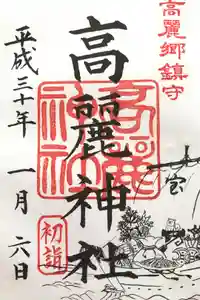 高麗郷鎮守
高麗神社
高麗神社
初詣
宝
平成三十年 一月 六日